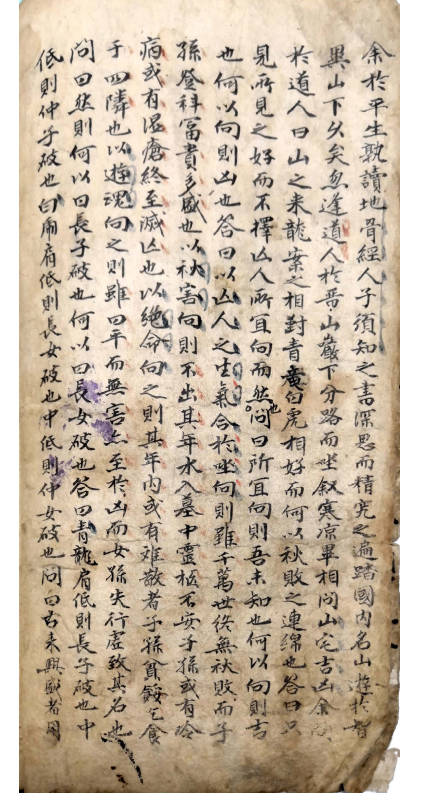 余於平生熟讀地骨經人子須知之書深思而精究之遍踏國內名山遊於智
異山下久矣忽逢道人於晋山巖下分路而坐叙寒凉畢相問山宅吉凶余問
於道人曰山之来龍案之相對青龍白虎相好而何以秋敗之連綿也答曰只
見所見之好而不擇凶人所宜向而然也問曰所宜向則吾未知也何以向則吉
也何以向則凶也答曰以凶人之生氣合於坐向則雖千萬世終無秋敗而子
孫登科冨貴多盛也以秋害向則不出其年水入墓中靈柩不安子孫或有冷
病或有湿瘡終至滅凶也以絶命向之則其年內或有难散者子孫貧餒乞食
于四隣也以遊魂向之則雖曰平而無害 至於凶而女孫失行虛致其名也
問曰然則何以曰長子破也何以曰長女破也答曰青龍肩低則長子破也中
低則仲子破也白虎肩低則長女破也中低則仲女破也問曰古来興盛者用